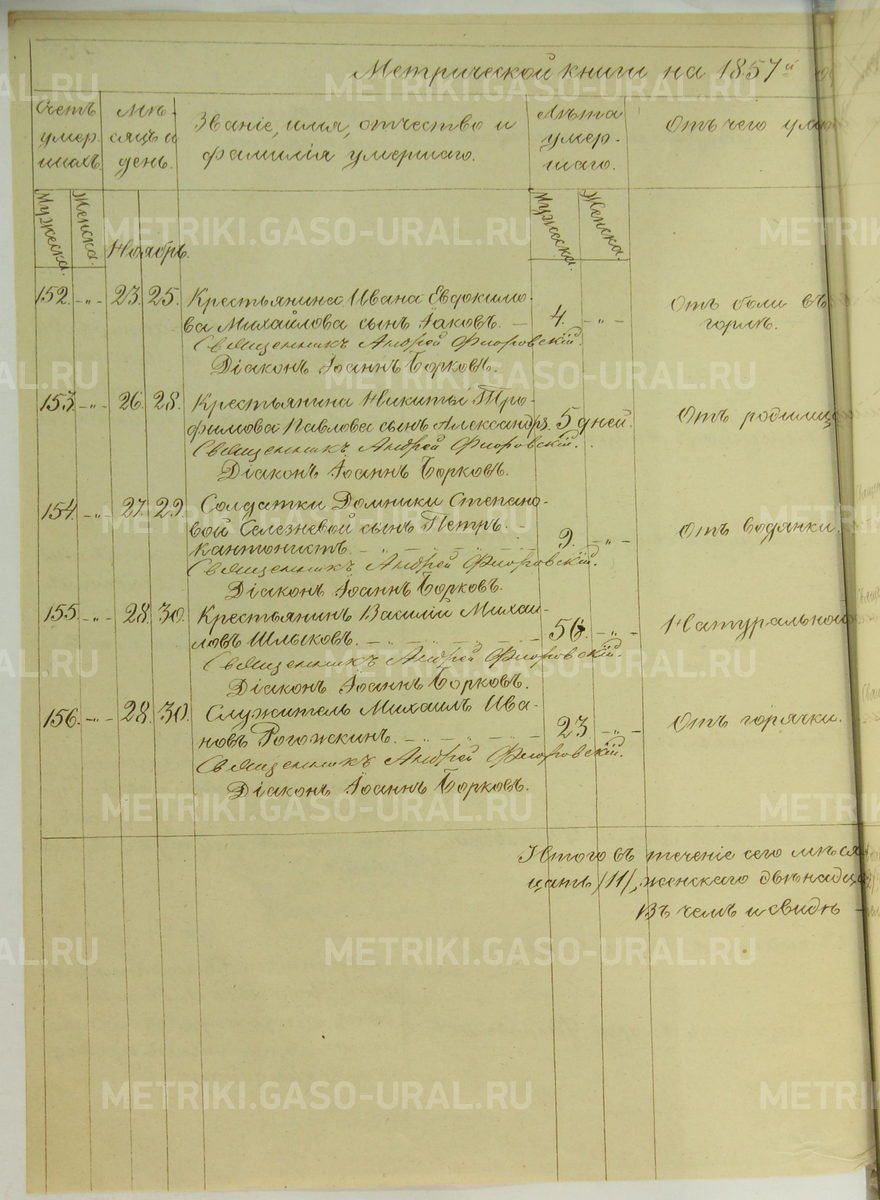 Метрической книги на 1857й
Счетъ умер- шихъ.
Мѣ- сяцъ и день.
Званіе, имя, отчество и фамилія умершаго.
Лѣта умер- шаго.
Отъ чего умер
Мужеска. Женска. Ноябрь. Мужеска. Женска.
152. -„- 23. 25. Крестьянина Ивана Евдокимо-
ва Михайлова сынъ Іаковъ. — 4. -„- Отъ боли въ горлѣ.
Священникъ Андрей Флоровскій.
Діаконъ Іоаннъ Борковъ.
153. -„- 26. 28. Крестьянина Никиты Тро-
фимова Павлова сынъ Александръ. 5 дней. Отъ родимиц
Священникъ Андрей Флоровскій.
Діаконъ Іоаннъ Борковъ.
154. -„- 27. 29. Солдатки Домники Степано-
вой Селезневой сынъ Петръ -
кантонистъ. 9. -„- Отъ водянки.
Священникъ Андрей Флоровскій.
Діаконъ Іоаннъ Борковъ.
155. -„- 28. 30. Крестьянинъ Василій Михаи-
ловъ Шлыковъ. 56. -„- Натуральной
Священникъ Андрей Флоровскій.
Діаконъ Іоаннъ Борковъ.
156. -„- 28. 30. Служитель Михаилъ Ива-
новъ Рогожскинъ. 23. -„- Отъ горячки.
Священникъ Андрей Флоровскій.
Діаконъ Іоаннъ Борковъ.
Итого въ теченіе сего мѣся
цать /11/, женскаго двѣнадца
Въ чемъ и свидѣ -
METRIKI.GASO-URAL.RU